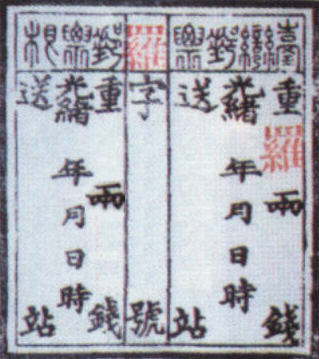 臺灣郵票
重 羅 兩 錢
光緒 年月日時
送 站
羅
字 號
郵票根
重 兩 錢
光緒 年月日時
送 站